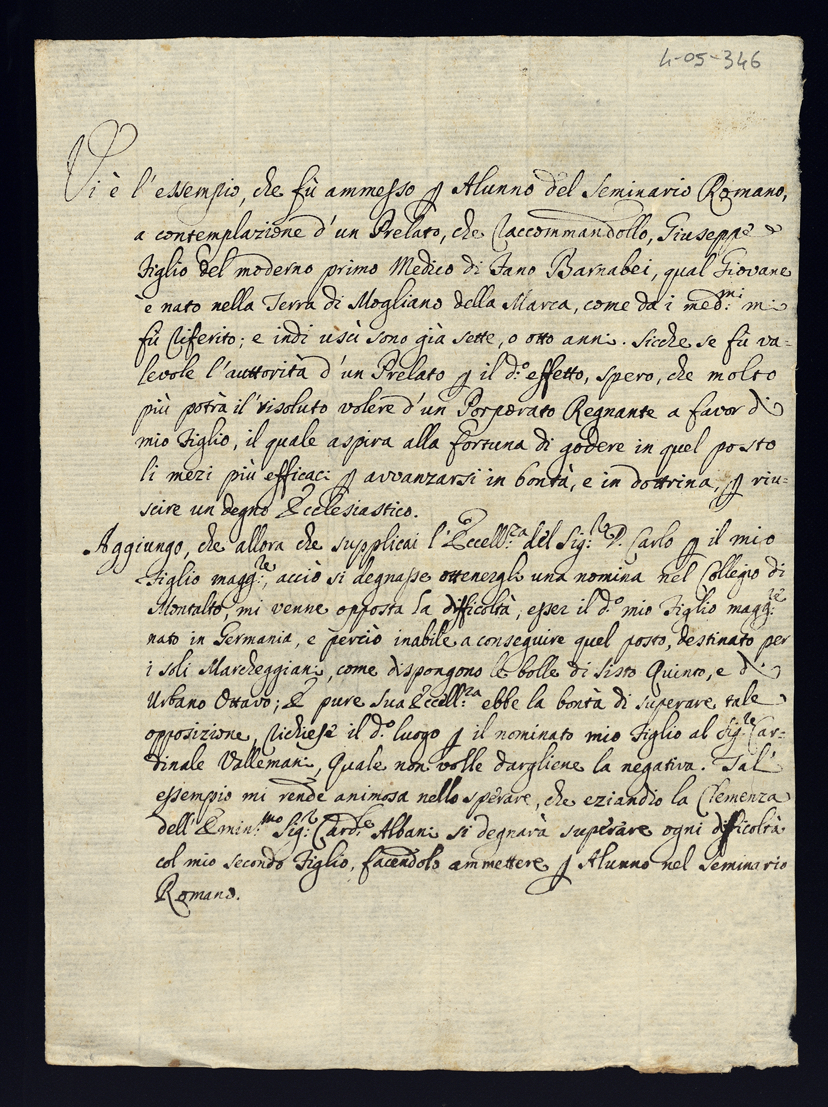 4-05-346
Vi è l'essempio, che fù ammesso ꝑ Alunno del Seminario Romano,
a contemplazione d'un Prelato, che raccommandollo, Giuseppe
Figlio del moderno primo Medico di Fano Barnabei, qual Giovane
è nato nella Terra di Mogliano della Marca, come da i med:mi mi
fù riferito; e indi uscì sono già sette, o otto anni. Sicche se fù va=
levole l'auttorità d'un Prelato ꝑ il d:o effetto, spero, che molto
più potrà il risoluto volere d'un Porporato Regnante a favor di
mio Figlio, il quale aspira alla fortuna di godere in quel posto
li mezi più efficaci ꝑ avvanzarsi in bontà, e in dottrina, ꝑ riu=
scire un degno Ecclesiastico.
Aggiungo, che allora che supplicai l'Eccell:za del Sig:re D. Carlo ꝑ il mio
Figlio magg:re, acciò si degnasse ottenergli una nomina nel Collegio di
Montalto, mi venne opposta la difficoltà, esser il d:o mio Figlio magg:re
nato in Germania, e perciò inabile a conseguire quel posto, destinato per
i soli Marcheggiani, come dispongono le bolle di Sisto Quinto, e di
Urbano Ottavo; E pure sua Eccell:za ebbe la bontà di superare tale
opposizione, richiese il d:o luogo ꝑ il nominato mio Figlio al Sig:re Car=
dinale Vallemani, Quale non volle dargliene la negativa. Tal'
essempio mi rende animosa nello sperare, che eziandio la Clemenza
dell'Emin:mo Sig:r Card:le Albani si degnarà superare ogni difficoltà
col mio secondo Figlio, facendolo ammettere ꝑ Alunno nel Seminario
Romano.